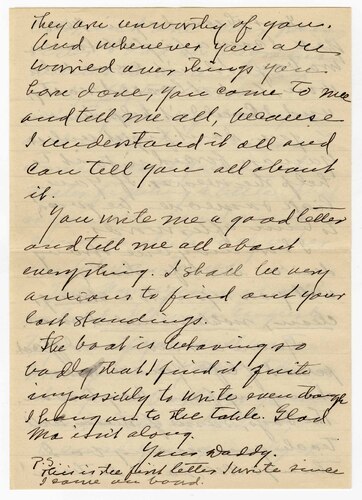 They are unworthy of you.
And whenever you are
worried over things you
have done, you come to me
and tell me all, because
I understand it all and
can tell you all about
it.
You write me a good letter
and tell me all about
everything. I shall be very
anxious to find out your
last standings.
The boat is behaving so
badly that I find it quite
impossibly to write even though
I hang on to the table. Glad
Ma isn't along.
Yours Daddy.
P.S.
This is the first letter I write since
I came on board.